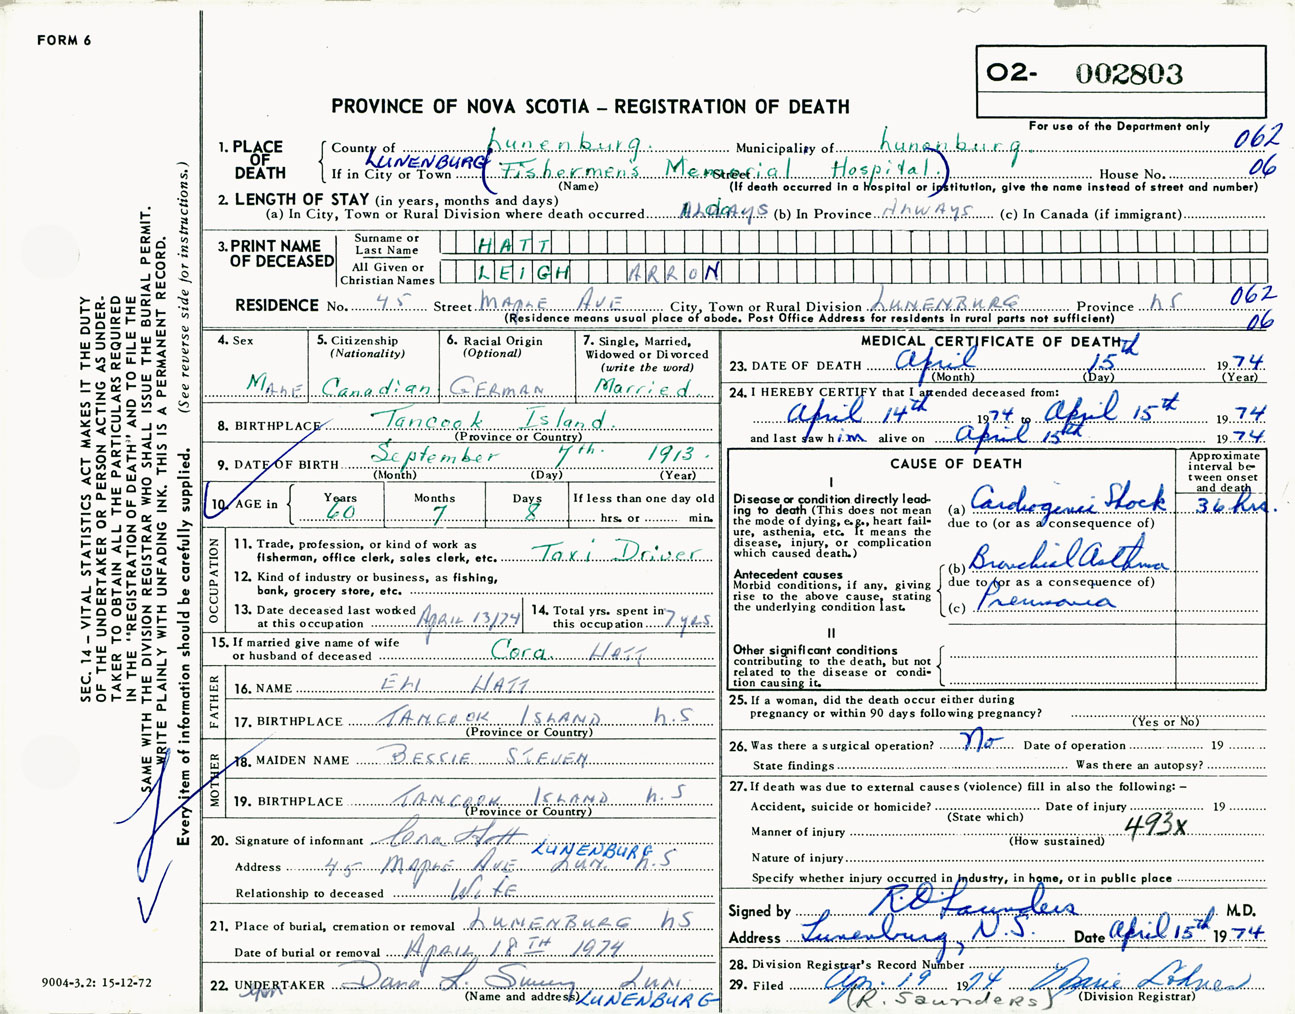 FORM 6
O2- 002803
PROVINCE OF NOVA SCOTIA – REGISTRATION OF DEATH
For use of the Department only
1. PLACE OF DEATH
County of Lunenburg. Municipality of Lunenburg. 062
If in City or Town LUNENBURG (Fishermen's Memorial Hospital) Street House No. 06
(Name) (If death occurred in a hospital or institution, give the name instead of street and number)
2. LENGTH OF STAY (in years, months and days)
(a) In City, Town or Rural Division where death occurred ALWAYS (b) In Province ALWAYS (c) In Canada (if immigrant)
3. PRINT NAME OF DECEASED
Surname or Last Name HATT
All Given or Christian Names LEIGH ARRON
RESIDENCE No. 45 Street MAPLE AVE City, Town or Rural Division LUNENBURG Province NS 062
(Residence means usual place of abode. Post Office Address for residents in rural parts not sufficient) 06
4. Sex
MALE
5. Citizenship
(Nationality)
Canadian
6. Racial Origin
(Optional)
GERMAN
7. Single, Married,
Widowed or Divorced
(write the word)
Married
8. BIRTHPLACE Tancook Island.
(Province or Country)
9. DATE OF BIRTH September 7th. 1913.
(Month) (Day) (Year)
10. AGE in Years 60 Months 7 Days 8 If less than one day old
hrs. or min.
OCCUPATION
11. Trade, profession, or kind of work as
fisherman, office clerk, sales clerk, etc. Taxi Driver
12. Kind of industry or business, as fishing,
bank, grocery store, etc.
13. Date deceased last worked
at this occupation APRIL 13/74
14. Total yrs. spent in
this occupation 7 yrs
15. If married give name of wife
or husband of deceased Cora HATT
FATHER
16. NAME ELI HATT
17. BIRTHPLACE TANCOOK ISLAND N.S
(Province or Country)
MOTHER
18. MAIDEN NAME BESSIE STEVEN
19. BIRTHPLACE TANCOOK ISLAND N.S
(Province or Country)
20. Signature of informant Cora Hatt
LUNENBURG
Address 45 MAPLE AVE LUN. N.S
Relationship to deceased WIFE
21. Place of burial, cremation or removal LUNENBURG NS
Date of burial or removal APRIL 18TH 1974
22. UNDERTAKER Dana L. LUN.
(Name and address) LUNENBURG
MEDICAL CERTIFICATE OF DEATH
23. DATE OF DEATH April 15th 1974
(Month) (Day) (Year)
24. I HEREBY CERTIFY that I attended deceased from:
April 14th 1974 to April 15th 1974
and last saw him alive on April 15th 1974
CAUSE OF DEATH
Approximate interval between onset and death
I
Disease or condition directly leading to death (This does not mean the mode of dying, e.g., heart failure, asthenia, etc. It means the disease, injury, or complication which caused death.)
(a) Cardiogenic Shock 36 hrs.
due to (or as a consequence of)
Antecedent causes
Morbid conditions, if any, giving rise to the above cause, stating the underlying condition last.
(b) Bronchial Asthma
due to (or as a consequence of)
(c) Pneumonia
II
Other significant conditions
contributing to the death, but not related to the disease or condition causing it.
25. If a woman, did the death occur either during
pregnancy or within 90 days following pregnancy?
(Yes or No)
26. Was there a surgical operation? No Date of operation 19
State findings Was there an autopsy?
27. If death was due to external causes (violence) fill in also the following: –
Accident, suicide or homicide? Date of injury 19
(State which)
Manner of injury 493X
(How sustained)
Nature of injury
Specify whether injury occurred in industry, in home, or in public place
Signed by R.O. Saunders M.D.
Address Lunenburg, N.S. Date April 15th 1974
28. Division Registrar's Record Number
29. Filed Apr. 19 1974
(R. SAUNDERS) (Division Registrar)
SEC. 14 – VITAL STATISTICS ACT MAKES IT THE DUTY
OF THE UNDERTAKER OR PERSON ACTING AS UNDER-
TAKER TO OBTAIN ALL THE PARTICULARS REQUIRED
IN THE "REGISTRATION OF DEATH" AND TO FILE THE
SAME WITH THE DIVISION REGISTRAR WHO SHALL ISSUE THE BURIAL PERMIT.
WRITE PLAINLY WITH UNFADING INK. THIS IS A PERMANENT RECORD.
Every item of information should be carefully supplied. (See reverse side for instructions.)
9004-3.2: 15-12-72